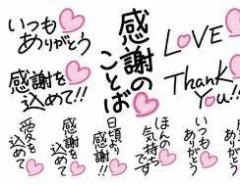 いつも
ありがとう
感謝を
込めて!!
感謝の
ことば
LOVE
Thank
You!!
愛を
込めて
感謝を
込めて
日頃より
感謝!!
ほんの
気持ち
です
いつも
ありがとう